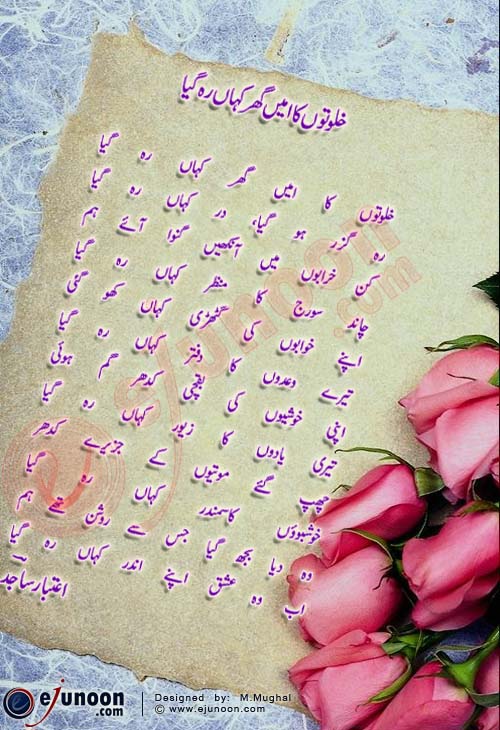 خلوتوں کا امیں گھر کہاں رہ گیا
خلوتوں کا امیں گھر کہاں رہ گیا
رہ گزر ہو گیا، در کہاں رہ گیا
کن خرابوں میں آنکھیں گنوا آئے ہم
چاند سورج کا منظر کہاں رہ گیا
اپنے خوابوں کی گٹھڑی کہاں کھو گئی
تیرے وعدوں کا دفتر کہاں رہ گیا
اپنی خوشبوں کی بقچی کدھر گم ہوئی
تیری یادوں کا زیور کہاں رہ گیا
چھپ گئے موتیوں کے جزیرے کدھر
خوشبوؤں کاسمندر کہاں رہ گیا
وہ دیا بجھ گیا جس سے روشن تھے ہم
اب وہ عشق اپنے اندر کہاں رہ گیا
اعتبار ساجد
ejunoon
.com
ejunoon
.com
Designed by: M.Mughal
© www.ejunoon.com